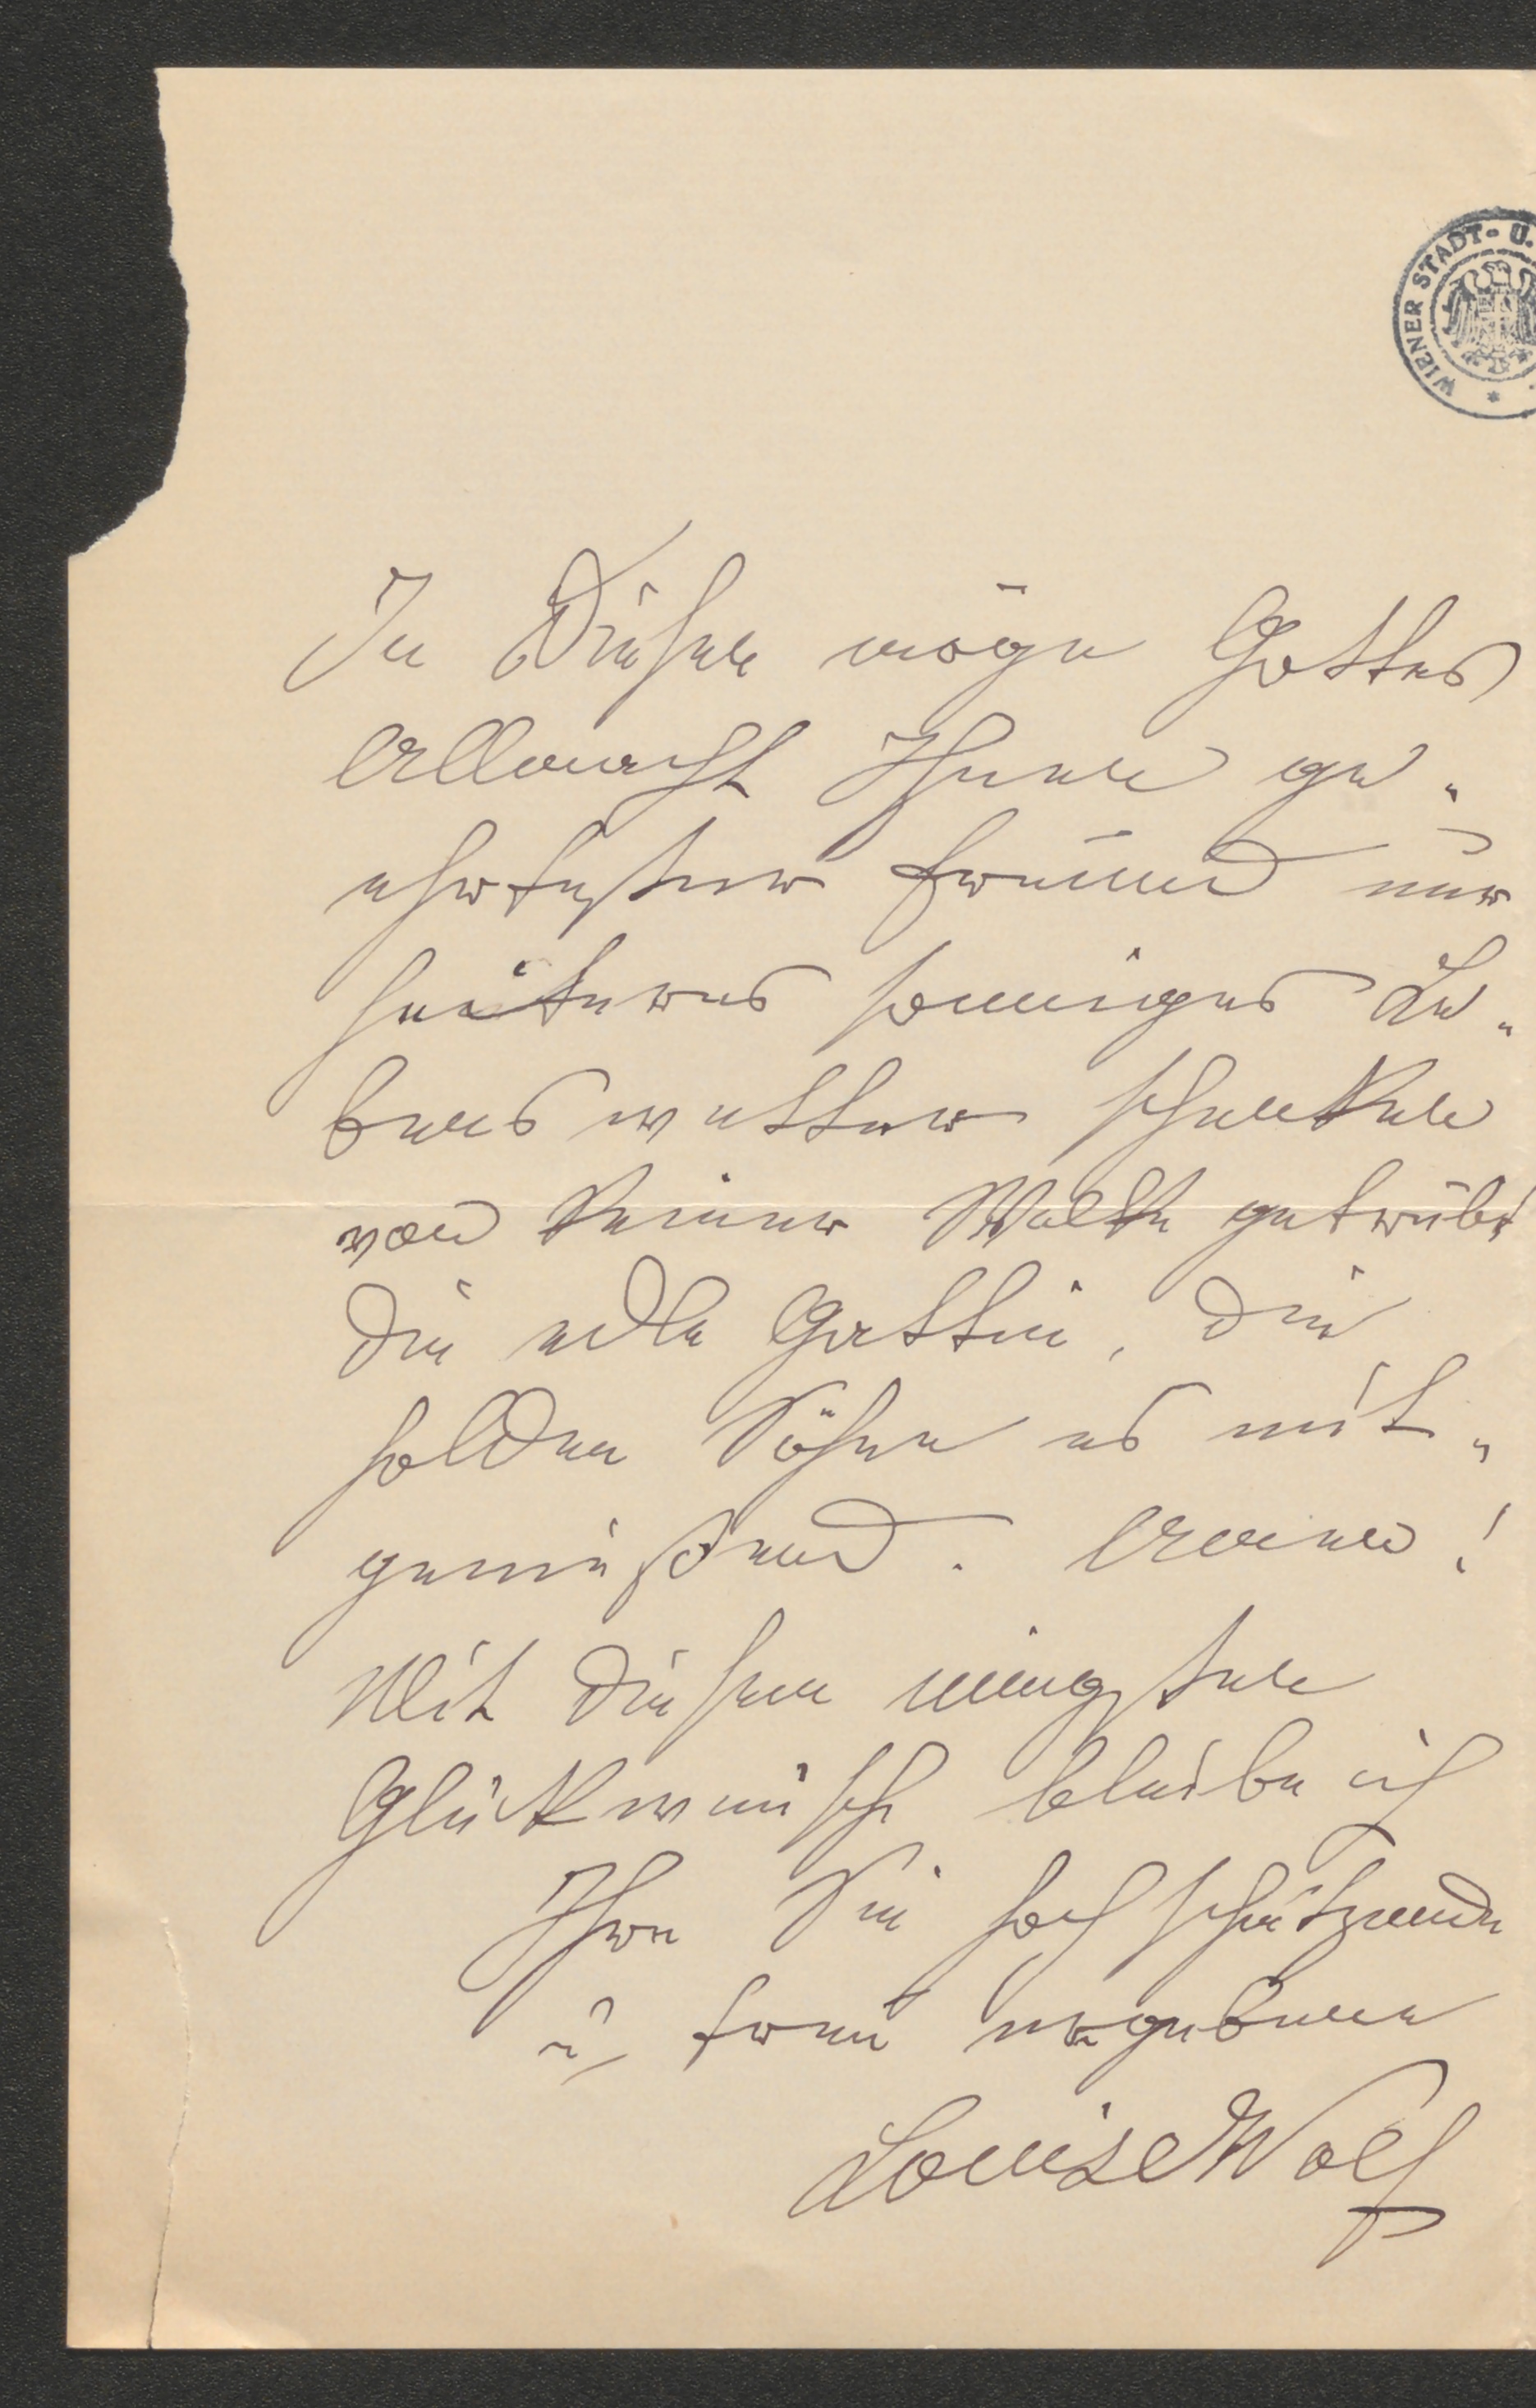 WIENER STADT- U.
In Diesem möge Gottes
Allmacht Ihnen ge„
ehrtester Freund nur
heiteres sonniges Le„
benswetter schenken
von keiner Wolke getrübt
die edle Gattin, die
holden Söhne es mit„
genießend. Amen!
Mit diesem innigsten
Glückwunsch bleibe ich
Ihre Sie hochschätzende
u. treu ergebene
Louise Wolf